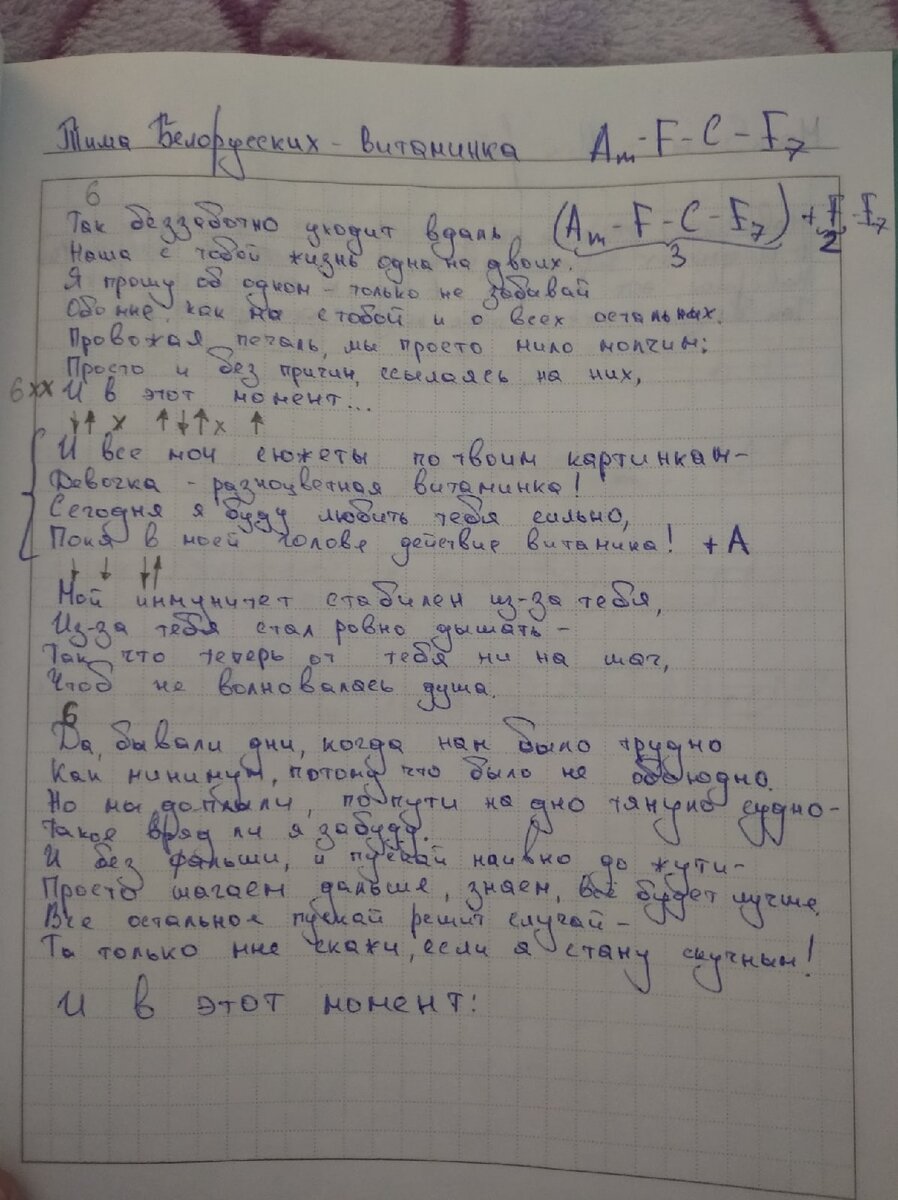 Тима Белорусских - витаминка Am-F-C-F7
6
Так беззаботно уходит вдаль (Am-F-C-F7)+ -F7
3 2
Наша с тобой жизнь одна на двоих.
Я прошу об одном - только не забывай
Обо мне как мы с тобой и о всех остальных.
Провожая печаль, мы просто мило молчим;
Просто и без причин, ссылаясь на них,
6xx И в этот момент...
↓↑ x ↑↓↑x ↑
И все мои сюжеты по твоим картинкам-
Девочка - разноцветная витаминка!
Сегодня я буду любить тебя сильно,
Пока в моей голове действие витамина! + A
↓ ↓ ↓↑
Мой иммунитет стабилен из-за тебя,
Из-за тебя стал ровно дышать-
Так что теперь от тебя ни на шаг,
Чтоб не волновалась душа.
6
Да, бывали дни, когда нам было трудно
Как минимум, потому что было не обоюдно.
Но мы доплыли, по пути на дно тянуло судно-
Такое вряд ли я забуду.
И без фальши, и пускай наивно до жути-
Просто шагаем дальше, знаем, всё будет лучше.
Все остальное пускай решит случай-
Ты только мне скажи, если я стану скучным!
И в этот момент: